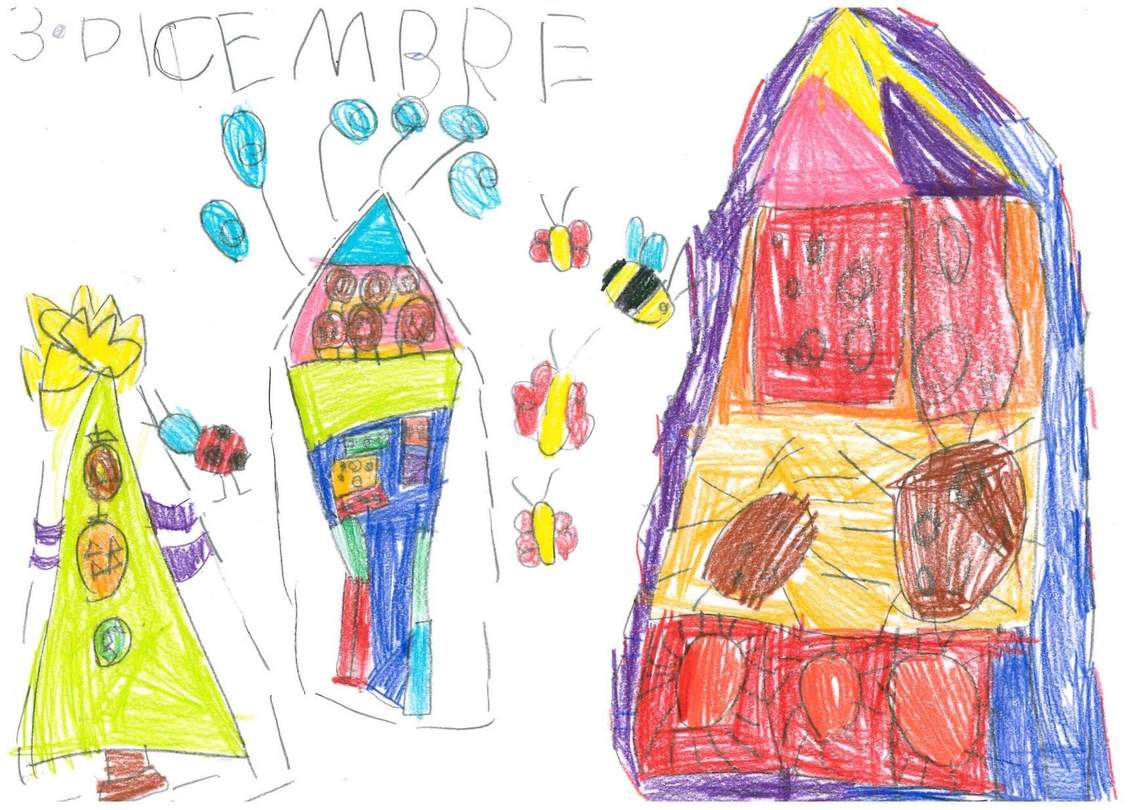 3 DICEMBRE